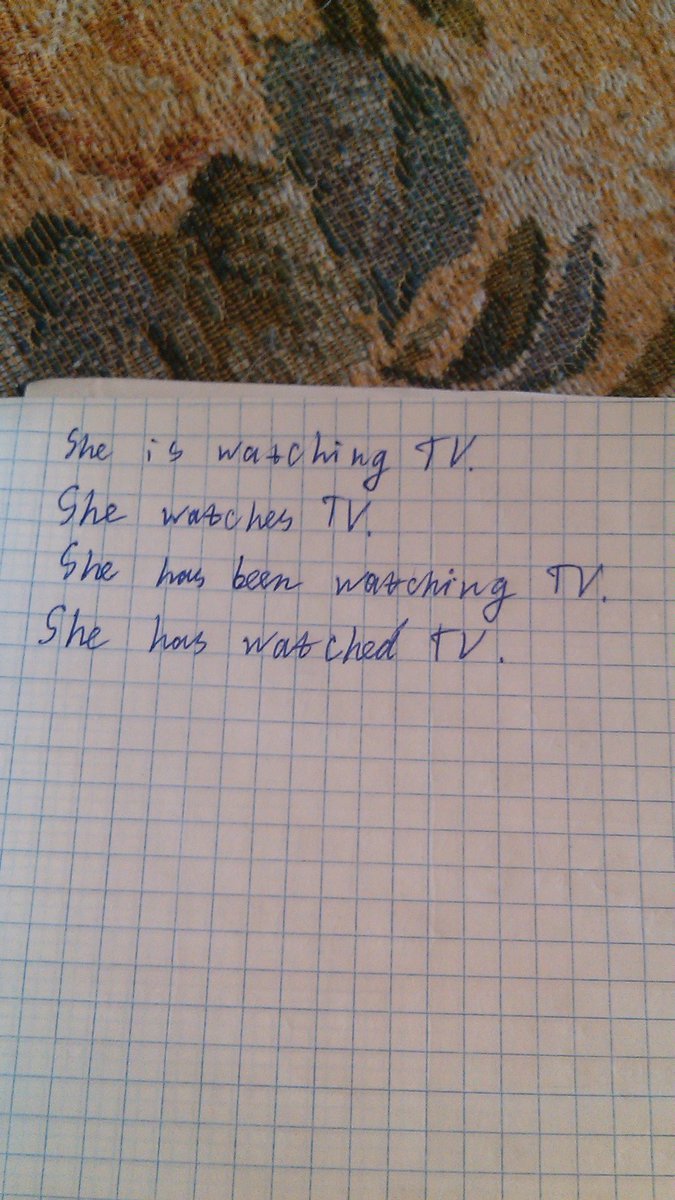 She is watching TV.
She watches TV.
She has been watching TV.
She has watched TV.